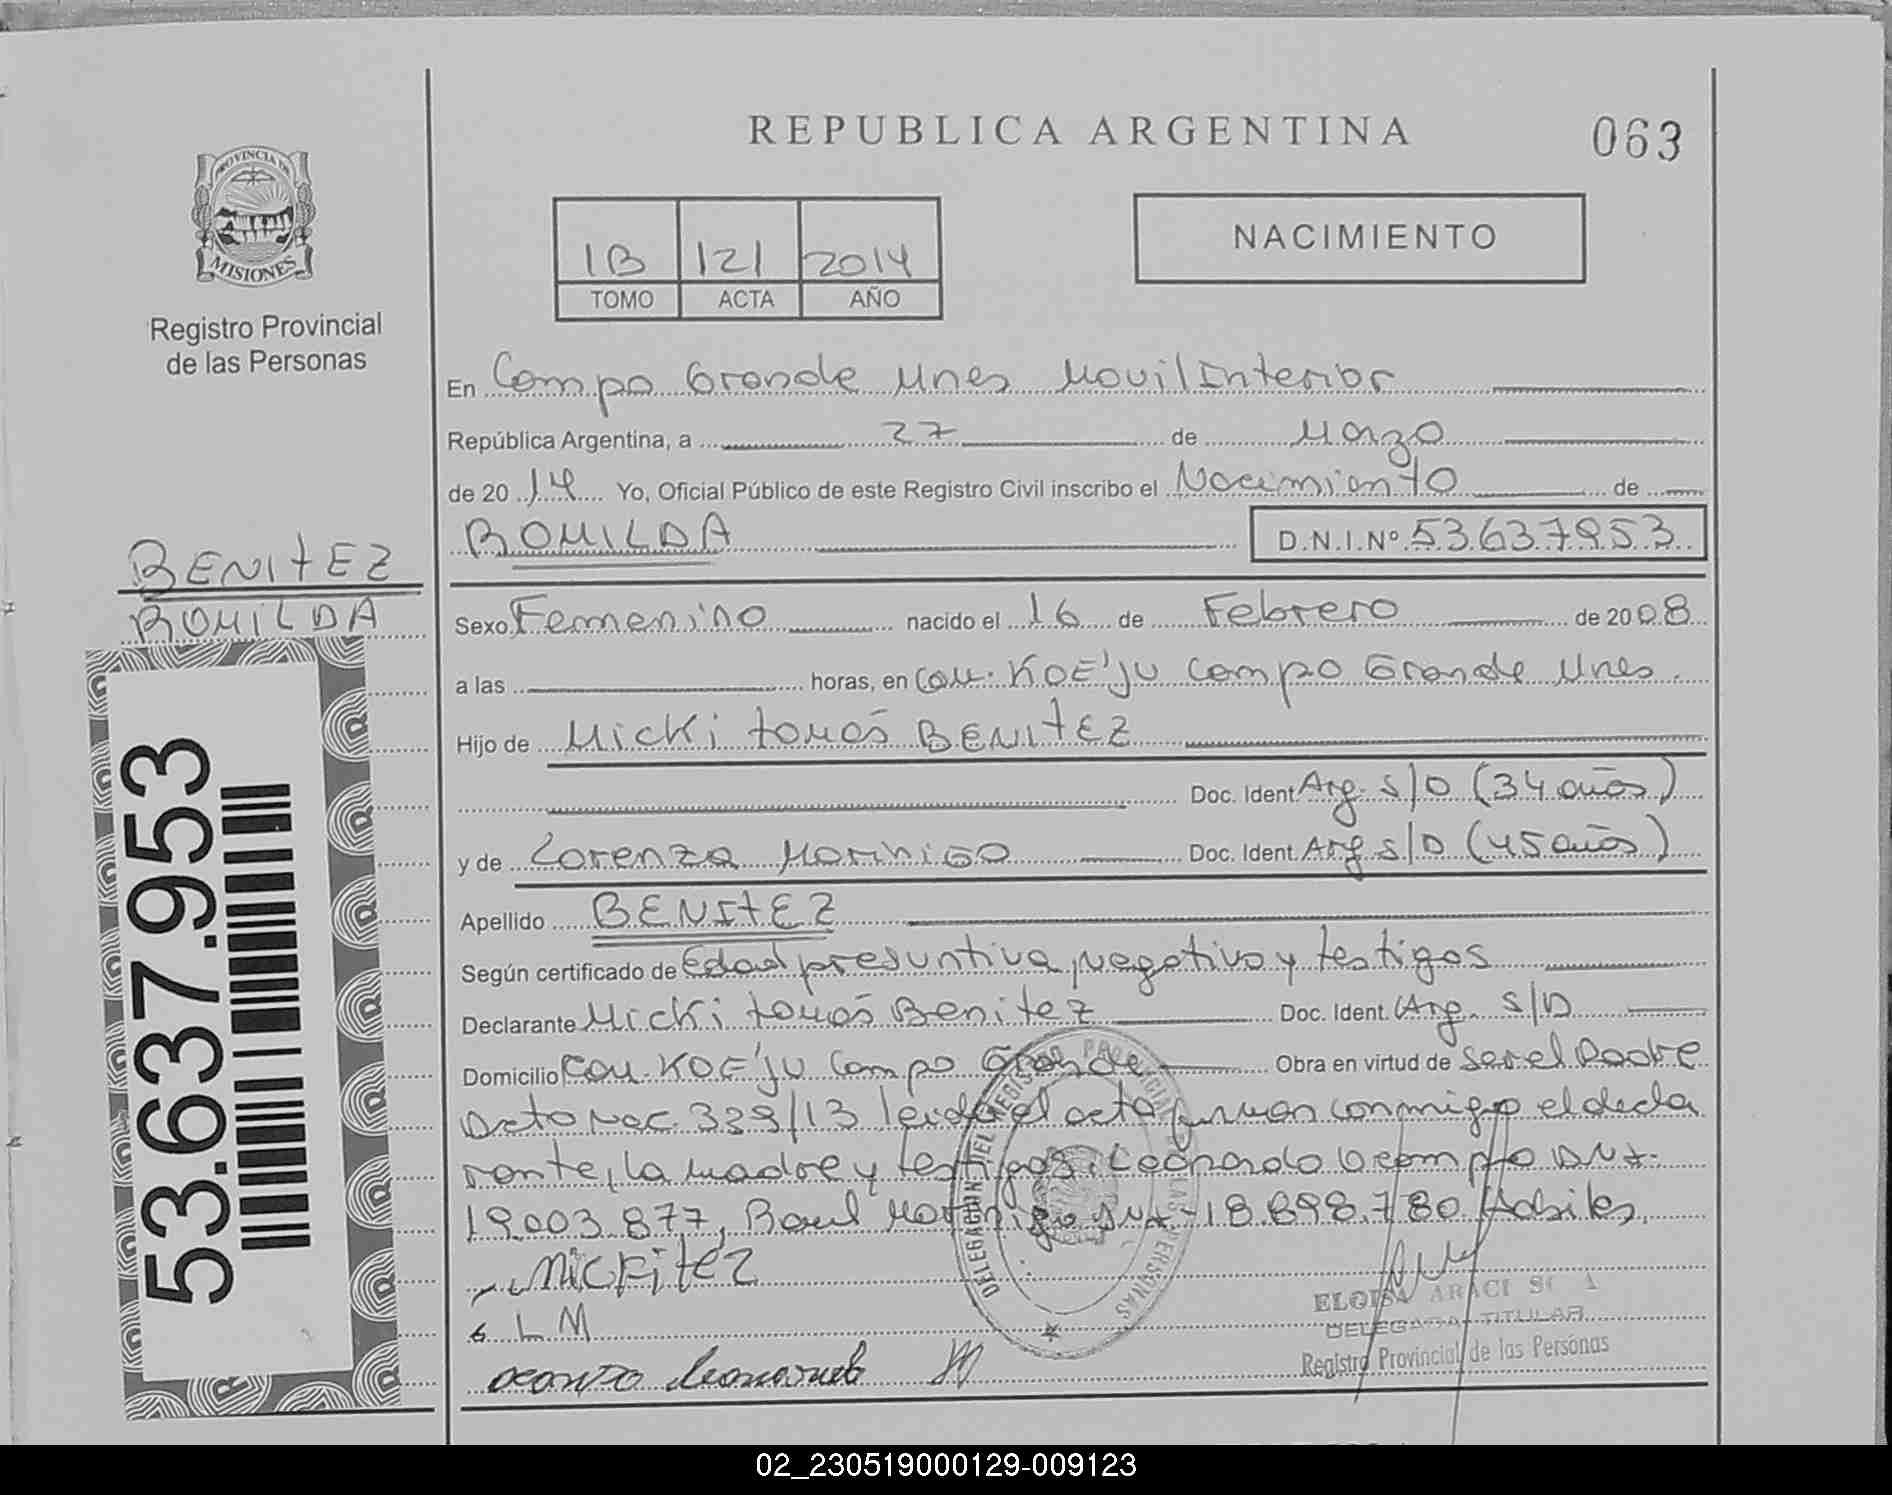 REPUBLICA ARGENTINA
063
PROVINCIA DE
MISIONES
Registro Provincial
de las Personas
1B 121 2014
TOMO ACTA AÑO
NACIMIENTO
En Campo Grande Mnes Movil Interior
República Argentina, a 27 de Marzo
de 20 14 Yo, Oficial Público de este Registro Civil inscribo el Nacimiento de
ROMILDA D.N.I.Nº 53637953
BENITEZ
ROMILDA
Sexo Femenino nacido el 16 de Febrero de 2008
a las horas, en Com. KOE'JU Campo Grande Mnes.
Hijo de Micki tomás BENITEZ
Doc. Ident. Arg. S/D (34 años)
y de Lorenza Morinigo Doc. Ident. Arg S/D (45 años)
Apellido BENITEZ
Según certificado de Edad presuntiva, negativo y testigos
Declarante Micki tomás Benitez Doc. Ident. Arg. S/D
Domicilio Com. KOE'JU Campo Grande Obra en virtud de ser el Padre
Dcto Nac. 339/13 leida el acta firman conmigo el decla
rante, la madre y testigos: Leonardo Ocampo DNI.
19.003.877, Raul Morinigo DNI. 18.898.780 Habiles.
Mickitez
L M
ocampo leonardo
53.637.953
DELEGACION DEL REGISTRO PROVINCIAL DE LAS PERSONAS
ELOISA ARACI
DELEGADA TITULAR
Registro Provincial de las Personas
02_230519000129-009123